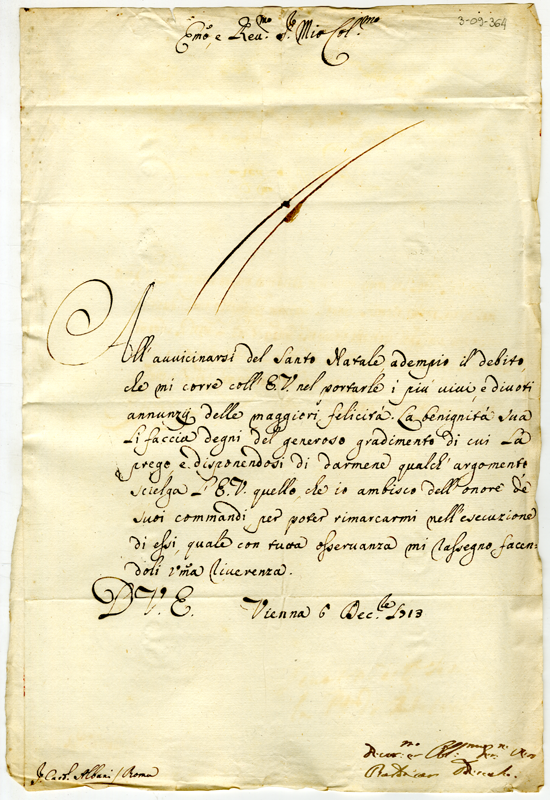 3-09-364
Em̃o, e Reu.mo Sr. Mio Col.mo
All'auuicinarsi del Santo Natale adempio il debito,
che mi corre coll'E.V. nel portarle i più viui, e diuoti
annunzÿ delle maggiori felicità. La benignità sua
li faccia degni del generoso gradimento di cui La
prego e disponendosi di darmene qualch'argomento
scielga L'E.V. quello, che io ambisco dell'onore de'
suoi commandi per poter rimarcarmi nell'esecuzione
di essi, quale con tutta osseruanza mi rassegno facen-
doli vm̃a riuerenza.
D V. E. Vienna 6 Dec.bre 1713
Sr. Card. Albani / Roma